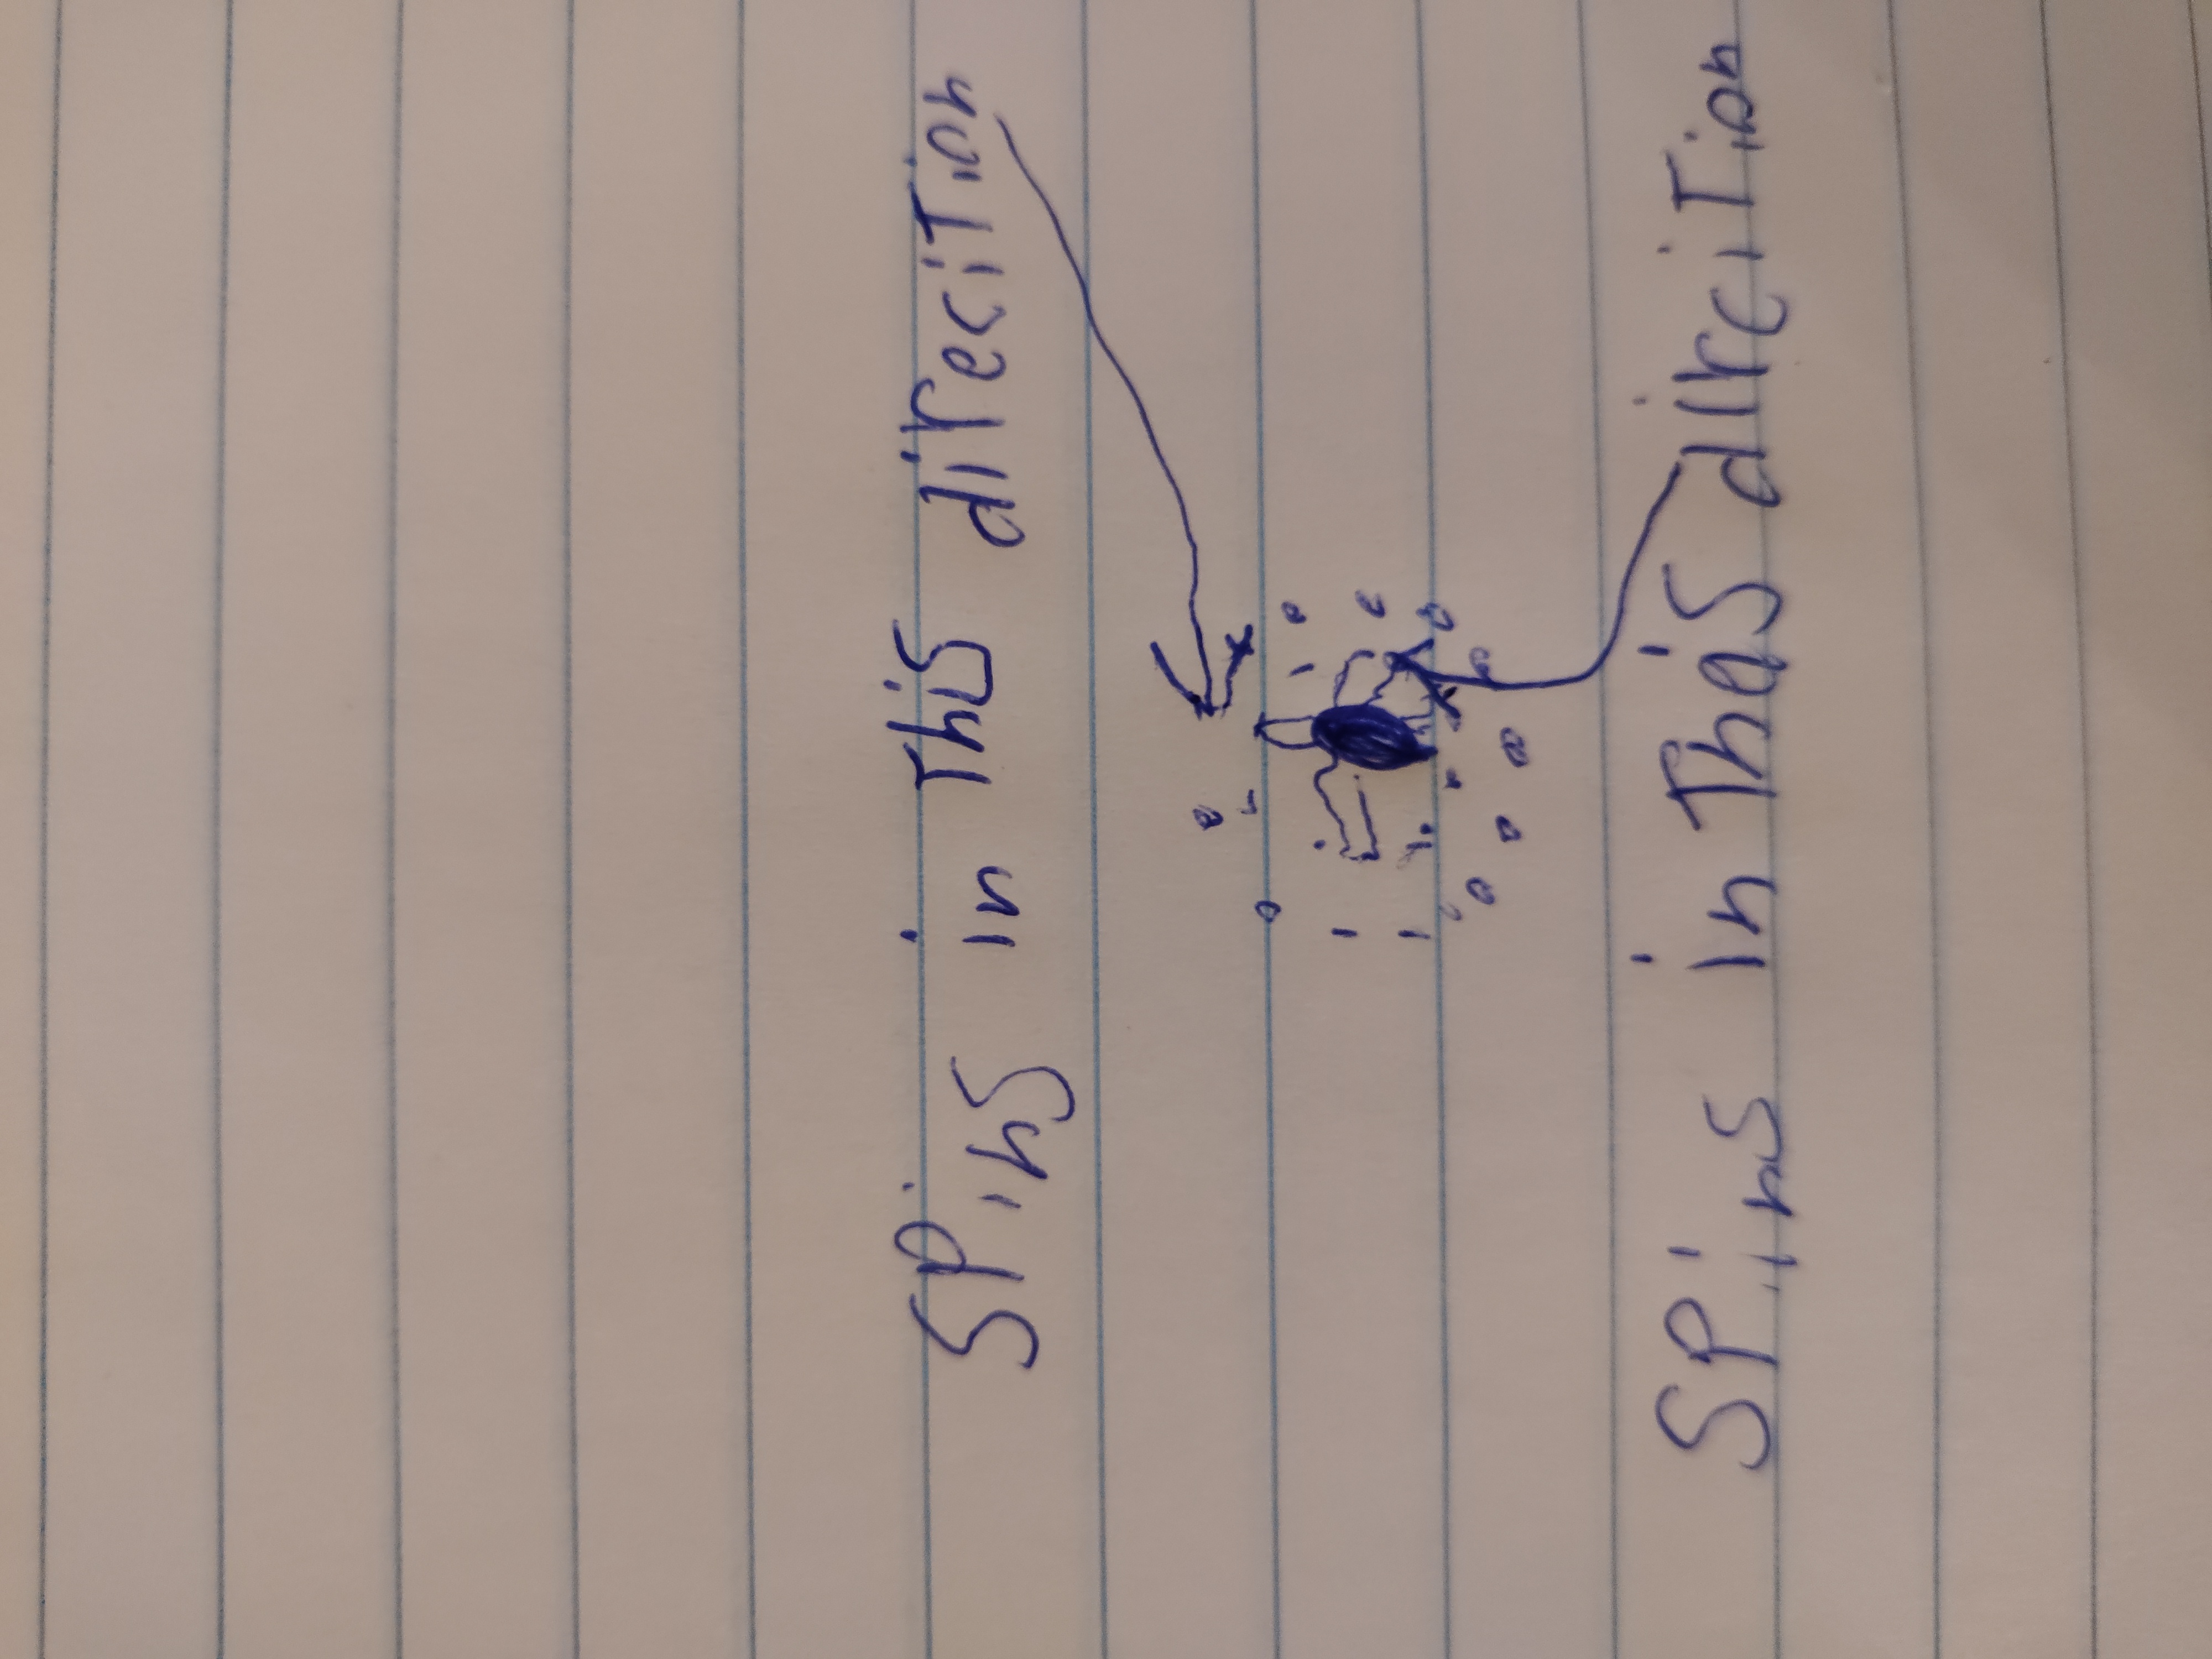 SPins in This direciTion
SPins in This direciTion